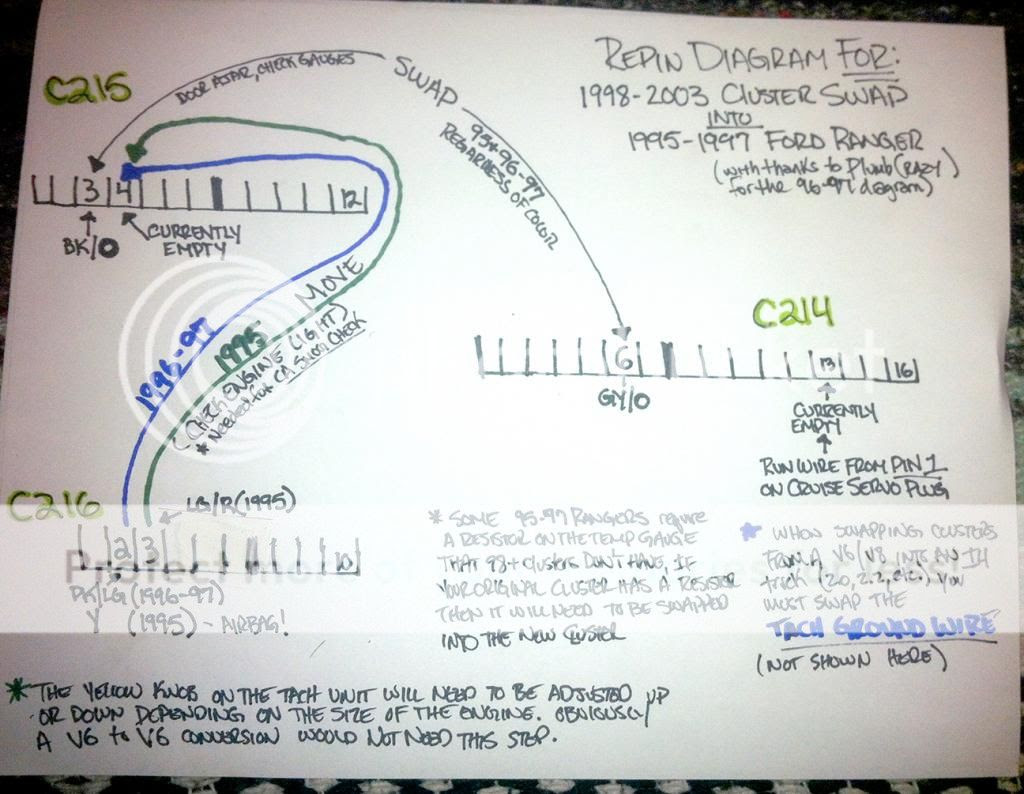 REPIN DIAGRAM FOR:
1998-2003 CLUSTER SWAP
INTO
1995-1997 FORD RANGER
(with thanks to Plumb CRAZY)
for the 96-97 diagram)
C215
DOOR AJAR, CHECK GAUGES
SWAP
95+96-97
REGARDLESS OF COLOR
3 4 12
BK/O
CURRENTLY
EMPTY
MOVE
1996-97
1995
(CHECK ENGINE LIGHT)
* Needed for CA Smog Check
C214
6 13 16
GY/O
CURRENTLY
EMPTY
RUN WIRE FROM PIN 1
ON CRUISE SERVO PLUG
C216
LG/R (1995)
2 3 10
PK/LG (1996-97)
Y (1995) - AIRBAG!
* SOME 95-97 RANGERS require
A RESISTOR ON THE TEMP GAUGE
THAT 98+ clusters DON'T HAVE, IF
YOUR ORIGINAL CLUSTER HAS A RESISTER
THEN IT WILL NEED TO BE SWAPPED
INTO THE NEW CLUSTER
* WHEN SWAPPING CLUSTERS
FROM A V6/V8 INTO AN I4
truck (2.0, 2.2, etc), YOU
MUST SWAP THE
TACH GROUND WIRE
(NOT SHOWN HERE)
* THE YELLOW KNOB ON THE TACH UNIT WILL NEED TO BE ADJUSTED UP
OR DOWN DEPENDING ON THE SIZE OF THE ENGINE. OBVIOUSLY
A V6 to V6 CONVERSION WOULD NOT NEED THIS STEP.